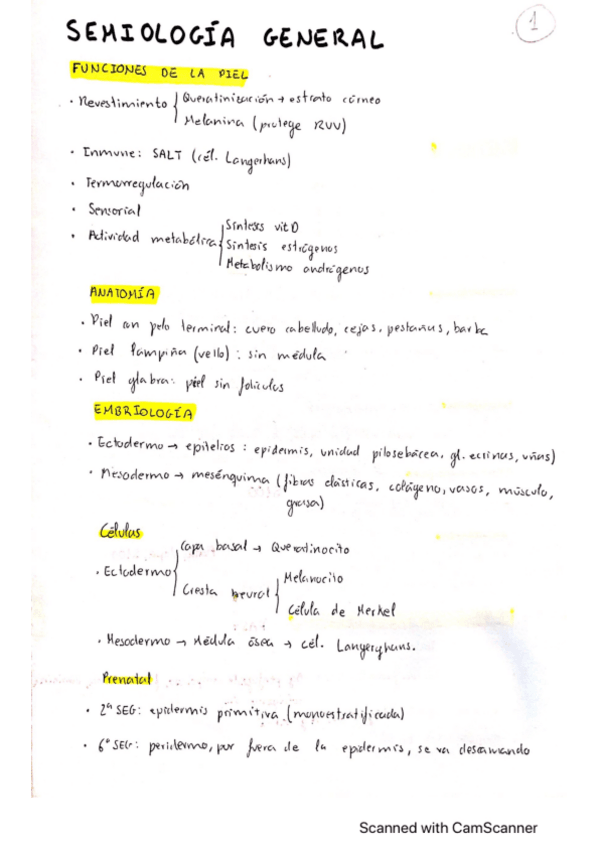 1
SEMIOLOGÍA GENERAL
FUNCIONES DE LA PIEL
· Revestimiento { Queratinización → estrato córneo
Melanina (protege RUV)
· Inmune: SALT (cél. Langerhans)
· Termorregulación
· Sensorial
· Actividad metabólica { Síntesis vit D
Síntesis estrógenos
Metabolismo andrógenos
ANATOMÍA
· Piel con pelo terminal: cuero cabelludo, cejas, pestañas, barba
· Piel lampiña (vello): sin médula
· Piel glabra: piel sin folículos
EMBRIOLOGÍA
· Ectodermo → epitelios: epidermis, unidad pilosebácea, gl. ecrinas, uñas)
· Mesodermo → mesénquima (fibras elásticas, colágeno, vasos, músculo,
grasa)
Células
· Ectodermo { Capa basal → Queratinocito
Cresta neural { Melanocito
Célula de Merkel
· Mesodermo → Médula ósea → cél. Langerghans.
Prenatal
· 2ª SEG: epidermis primitiva (monoestratificada)
· 6ª SEG: peridermo, por fuera de la epidermis, se va descamando
Scanned with CamScanner